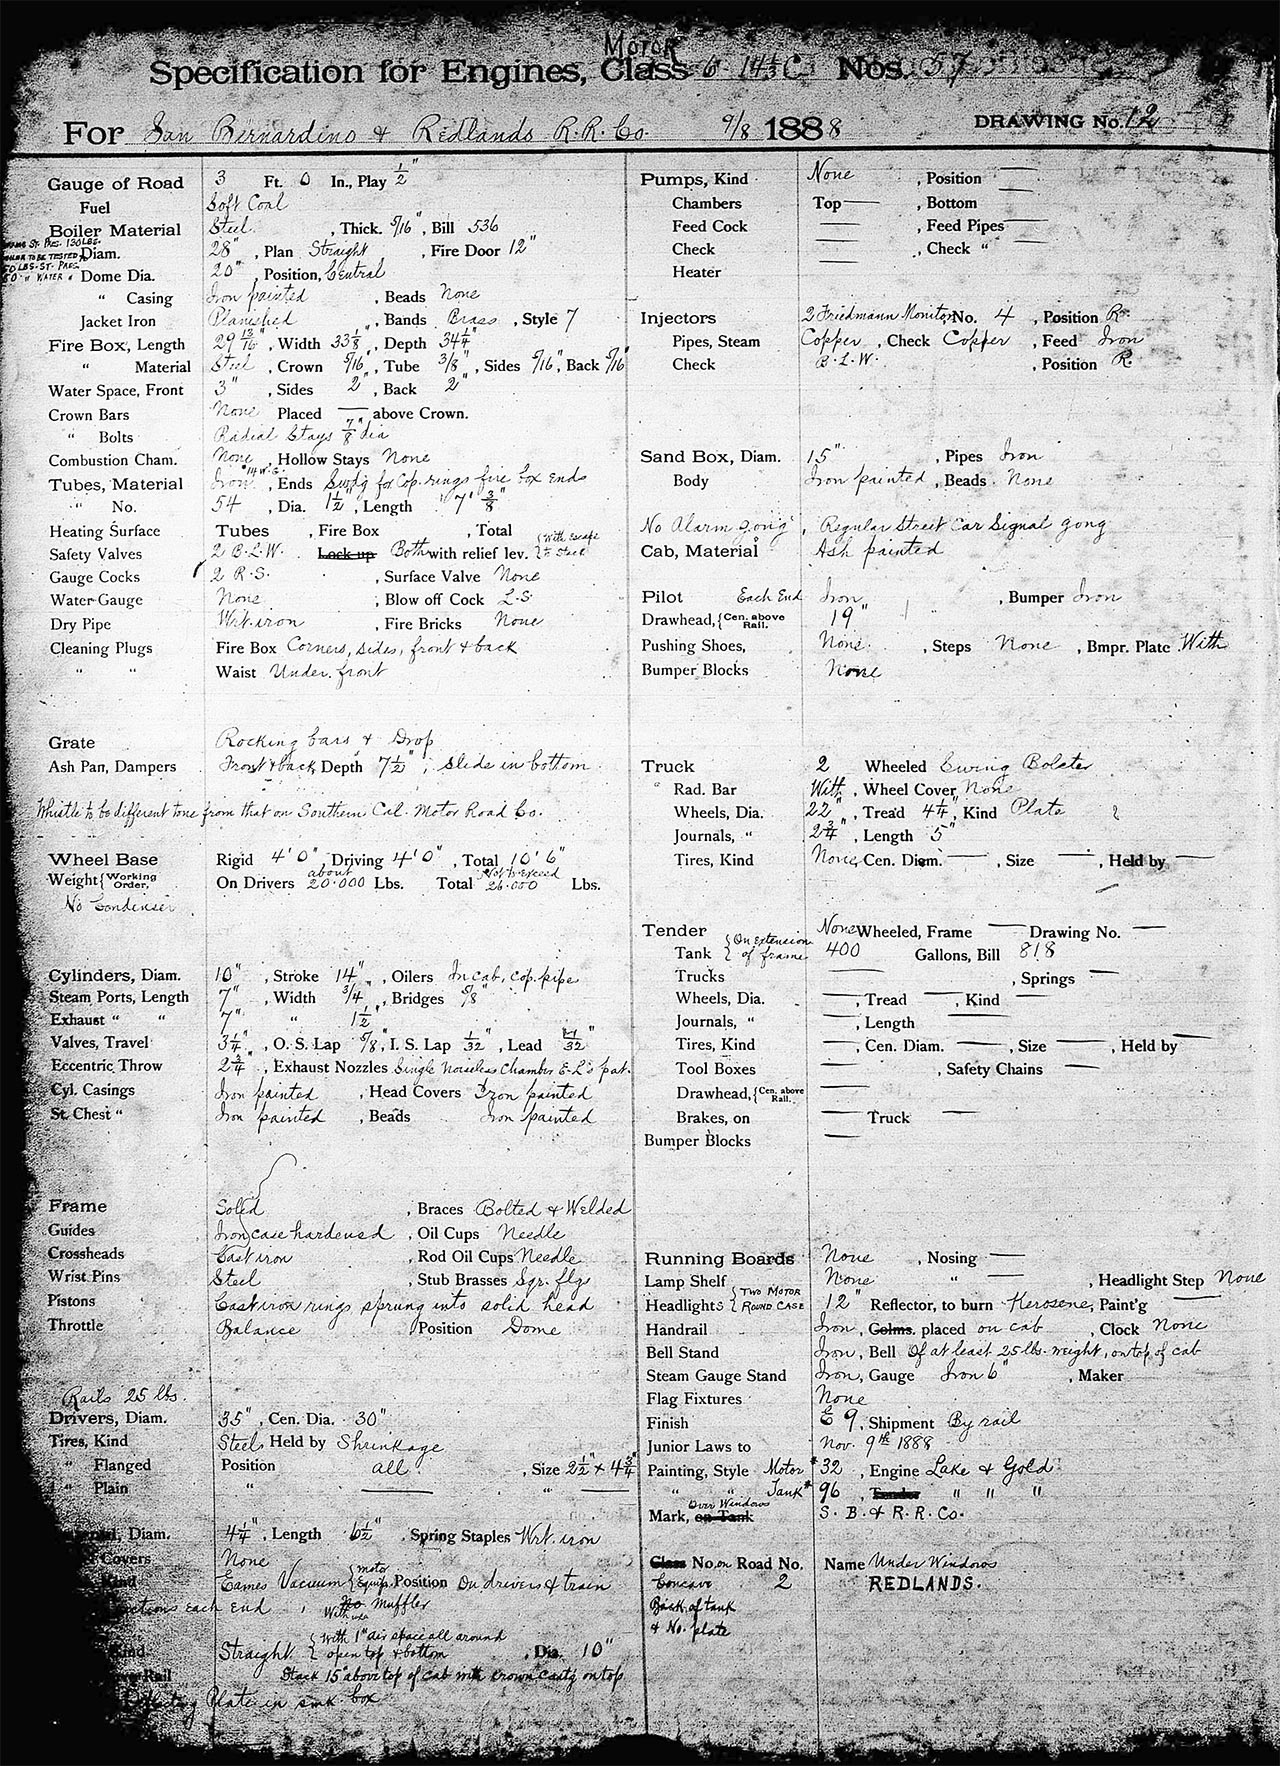 Motor
Specification for Engines, Class 6 14⅓ C Nos. 57
For San Bernardino & Redlands R.R. Co. 9/8 1888 DRAWING No. 12
Gauge of Road 3 Ft. 0 In., Play ½"
Fuel Soft Coal
Boiler Material Steel , Thick. 5/16" , Bill 536
St. Pres. 130 LBS.
Diam. 28" , Plan Straight , Fire Door 12"
TO BE TESTED
LBS. ST. PRES.
WATER "
Dome Dia. 20" , Position, Central
" Casing Iron painted , Beads None
Jacket Iron Planished , Bands Brass , Style 7
Fire Box, Length 29 13/16" , Width 33⅛" , Depth 34¼"
" Material Steel , Crown 5/16" , Tube 3/8" , Sides 5/16", Back 5/16"
Water Space, Front 3" , Sides 2" , Back 2"
Crown Bars None Placed — above Crown.
" Bolts Radial Stays ⅞" dia
Combustion Cham. None , Hollow Stays None
Tubes, Material Iron #14 W.G. , Ends Swd'g for Cop. rings fire box ends
" No. 54 , Dia. 1½" , Length 7' ⅜"
Heating Surface Tubes , Fire Box , Total
Safety Valves 2 B.L.W. Lock up Both with relief lev. {With escape to stack
Gauge Cocks 2 R.S. , Surface Valve None
Water Gauge None , Blow off Cock L.S.
Dry Pipe Wrt. iron , Fire Bricks None
Cleaning Plugs Fire Box Corners, sides, front & back
" " Waist Under front
Grate Rocking bars & Drop
Ash Pan, Dampers Front & back, Depth 7½" ; Slide in bottom
Whistle to be different tone from that on Southern Cal. Motor Road Co.
Wheel Base Rigid 4' 0" , Driving 4' 0" , Total 10' 6"
Weight {Working Order, On Drivers about 20.000 Lbs. Total Not to exceed 26.000 Lbs.
No Condenser
Cylinders, Diam. 10" , Stroke 14" , Oilers In cab, cop. pipe
Steam Ports, Length 7" , Width ¾" , Bridges 5/8"
Exhaust " " 7" " 1½"
Valves, Travel 3¼" , O. S. Lap 5/8", I. S. Lap 1/32" , Lead 1/32"
Eccentric Throw 2¾" , Exhaust Nozzles Single Noiseless Chamber E-L's pat.
Cyl. Casings Iron painted , Head Covers Iron painted
St. Chest " Iron painted , Beads Iron painted
Frame Solid , Braces Bolted & Welded
Guides Iron, case hardened , Oil Cups Needle
Crossheads Cast iron , Rod Oil Cups Needle
Wrist Pins Steel , Stub Brasses Sqr. flg
Pistons Cast iron rings sprung into solid head
Throttle Balance , Position Dome
Rails 25 lbs.
Drivers, Diam. 35" , Cen. Dia. 30"
Tires, Kind Steel, Held by Shrinkage
" Flanged Position all , Size 2½" x 4¾"
" Plain " — " —
Diam. 4¼" , Length 6½" , Spring Staples Wrt. iron
Covers None
Kind Eames Vacuum {Motor Equip. Position On drivers & train
each End , With no Muffler
Kind Straight {with 1" air space all around open top & bottom , Dia. 10"
Rail Stack 15" above top of cab with crown cast'g on top
Plate in smk. box
Pumps, Kind None , Position —
Chambers Top — , Bottom
Feed Cock — , Feed Pipes —
Check — , Check " —
Heater —
Injectors 2 Friedmann Monitor, No. 4 , Position R.
Pipes, Steam Copper , Check Copper , Feed Iron
Check B.L.W. , Position R.
Sand Box, Diam. 15" , Pipes Iron
Body Iron painted , Beads None
No Alarm gong , Regular Street Car Signal gong
Cab, Material Ash painted
Pilot Each End Iron , Bumper Iron
Drawhead, {Cen. above Rail. 19"
Pushing Shoes, None , Steps None , Bmpr. Plate With
Bumper Blocks None
Truck 2 Wheeled Swing Bolster
" Rad. Bar With , Wheel Cover None
Wheels, Dia. 22" , Tread 4¼" , Kind Plate
Journals, " 2¾" , Length 5"
Tires, Kind None, Cen. Diam. — , Size — , Held by —
Tender None Wheeled, Frame — Drawing No. —
Tank {On extension of frame 400 Gallons, Bill 818
Trucks — , Springs —
Wheels, Dia. — , Tread — , Kind —
Journals, " — , Length —
Tires, Kind — , Cen. Diam. — , Size — , Held by —
Tool Boxes — , Safety Chains —
Drawhead, {Cen. above Rail. —
Brakes, on — Truck —
Bumper Blocks —
Running Boards None , Nosing —
Lamp Shelf None " — , Headlight Step None
Headlights {TWO MOTOR ROUND CASE 12" Reflector, to burn Kerosene, Paint'g —
Handrail Iron, Colms. placed on cab , Clock None
Bell Stand Iron, Bell Of at least 25 lbs. weight, on top of cab
Steam Gauge Stand Iron, Gauge Iron 6" , Maker
Flag Fixtures None
Finish E 9 , Shipment By rail
Junior Laws to Nov. 9th 1888
Painting, Style Motor #32 , Engine Lake & Gold
" " Tank #96 , Tender " " "
Mark, Over Windows on Tank S. B. & R. R. Co.
Class No. on Road No. 2 Name Under Windows
Concave REDLANDS.
Back of tank
& No. plate